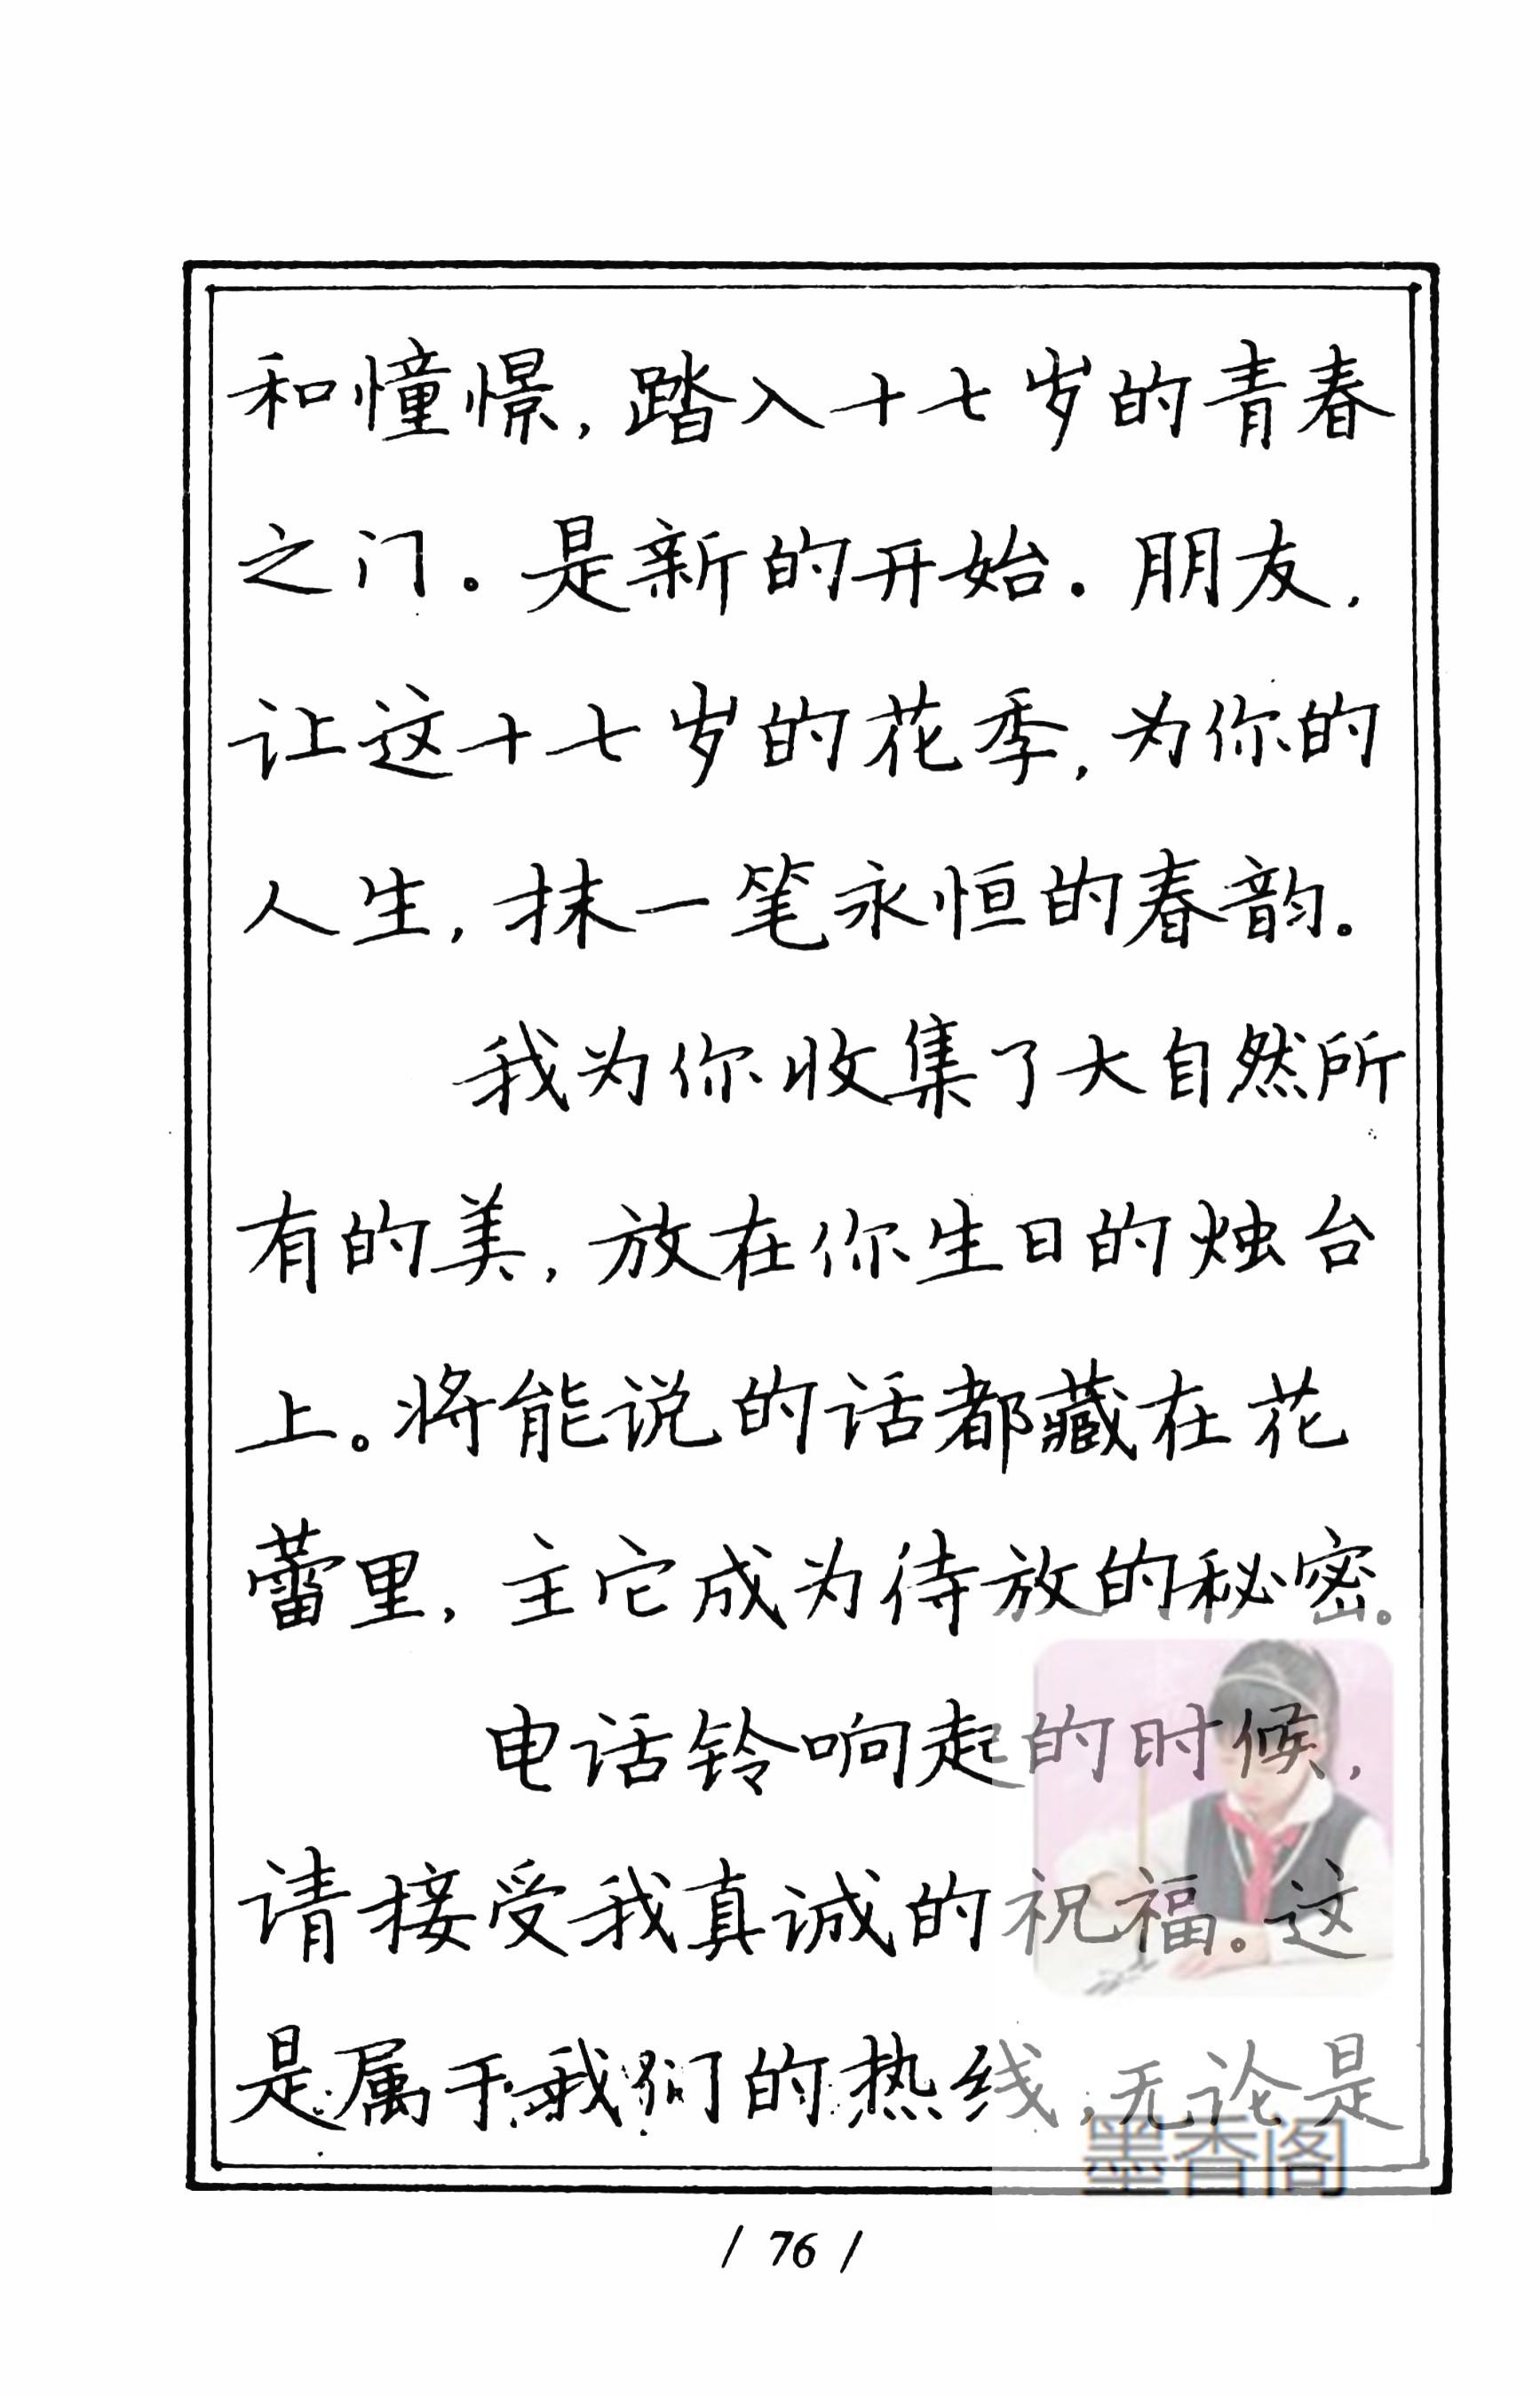 和憧憬，踏入十七岁的青春
之门。是新的开始．朋友，
让这十七岁的花季，为你的
人生，抹一笔永恒的春韵。
我为你收集了大自然所
有的美，放在你生日的烛台
上。将能说的话都藏在花
蕾里，主它成为待放的秘密。
电话铃响起的时候，
请接受我真诚的祝福。这
是属于我们的热线，无论是
墨香阁
/ 76 /